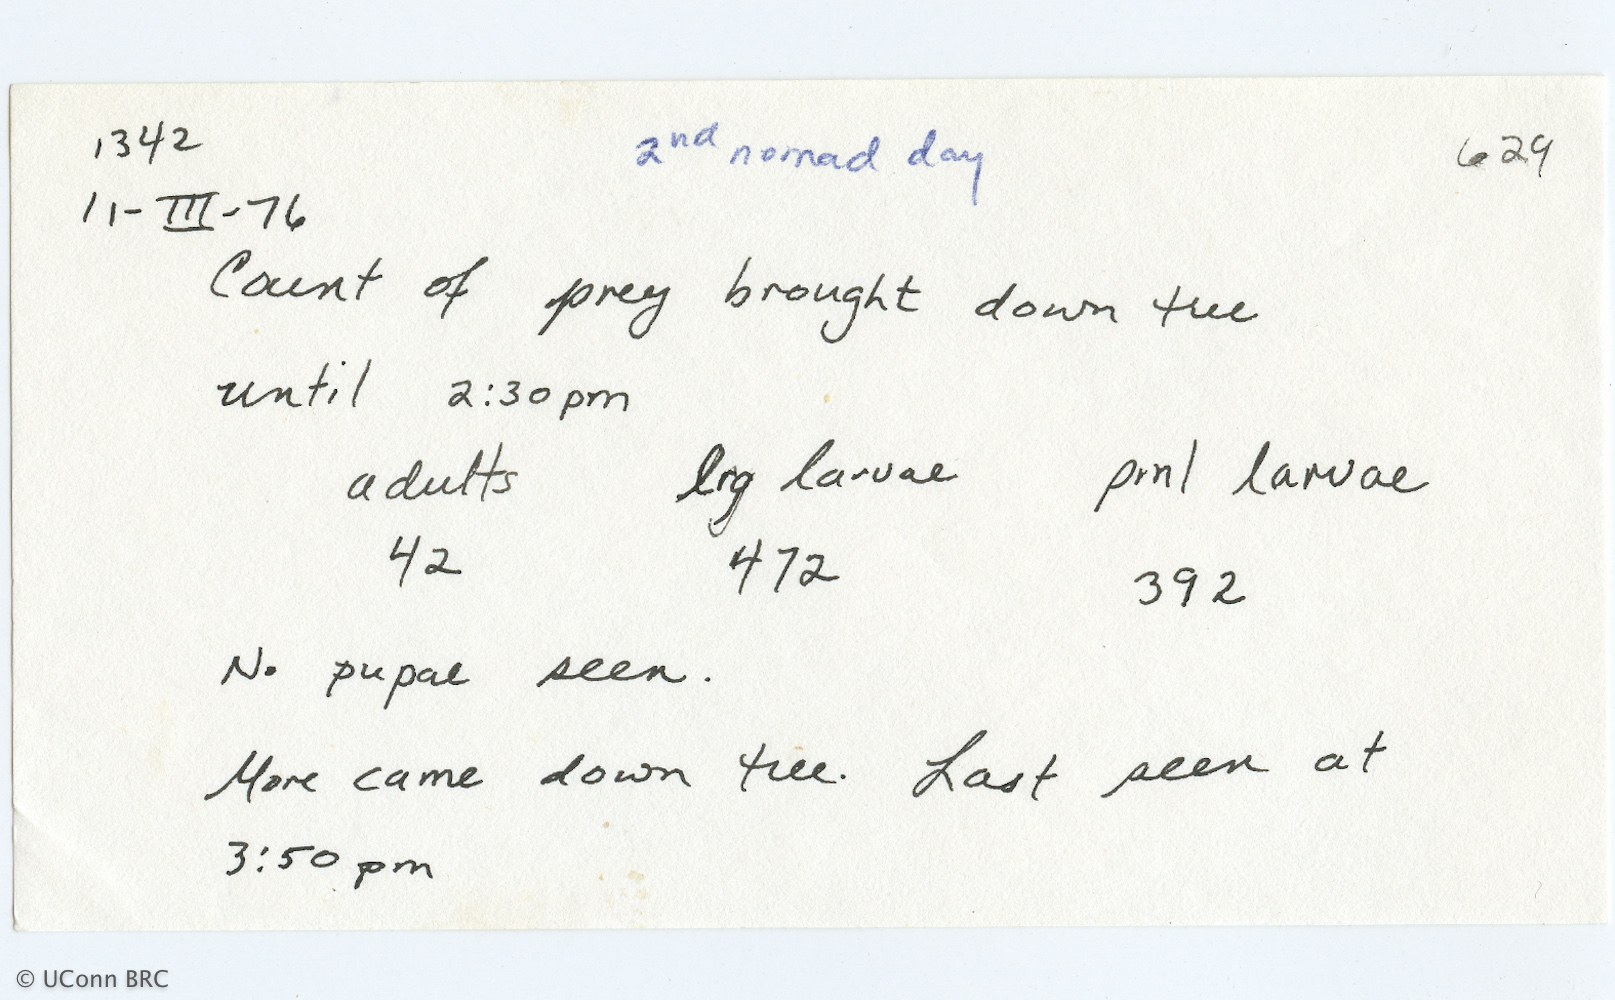 1342 2nd nomad day 629
11-III-76
Count of prey brought down tree
until 2:30pm
adults lrg larvae sml larvae
42 472 392
No pupae seen.
More came down tree. Last seen at
3:50 pm
© UConn BRC